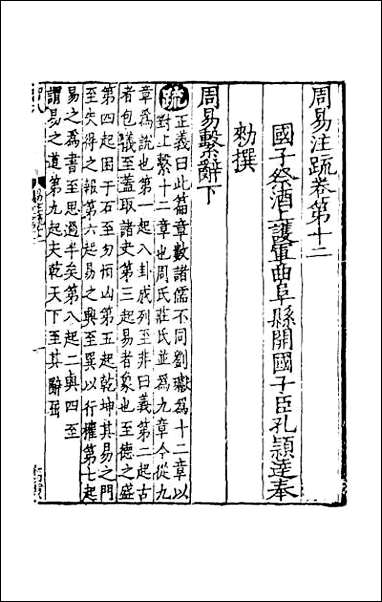 周易注疏卷第十二
國子祭酒上護軍曲阜縣開國子臣孔穎達奉
勑撰
周易繫辭下
疏正義曰此篇章數諸儒不同劉瓛為十二章以
對上繫十二章也周氏莊氏並為九章今從九
章為說也第一起八卦成列至非曰義第二起古
者包犧至蓋取諸夬第三起易者象也至德之盛
第四起困于石至勿恒凶第五起乾坤其易之門
至失得之報第六起易之興至巽以行權第七起
易之為書至思過半矣第八起二與四至
謂易之道第九起夫乾天下至其辭屈